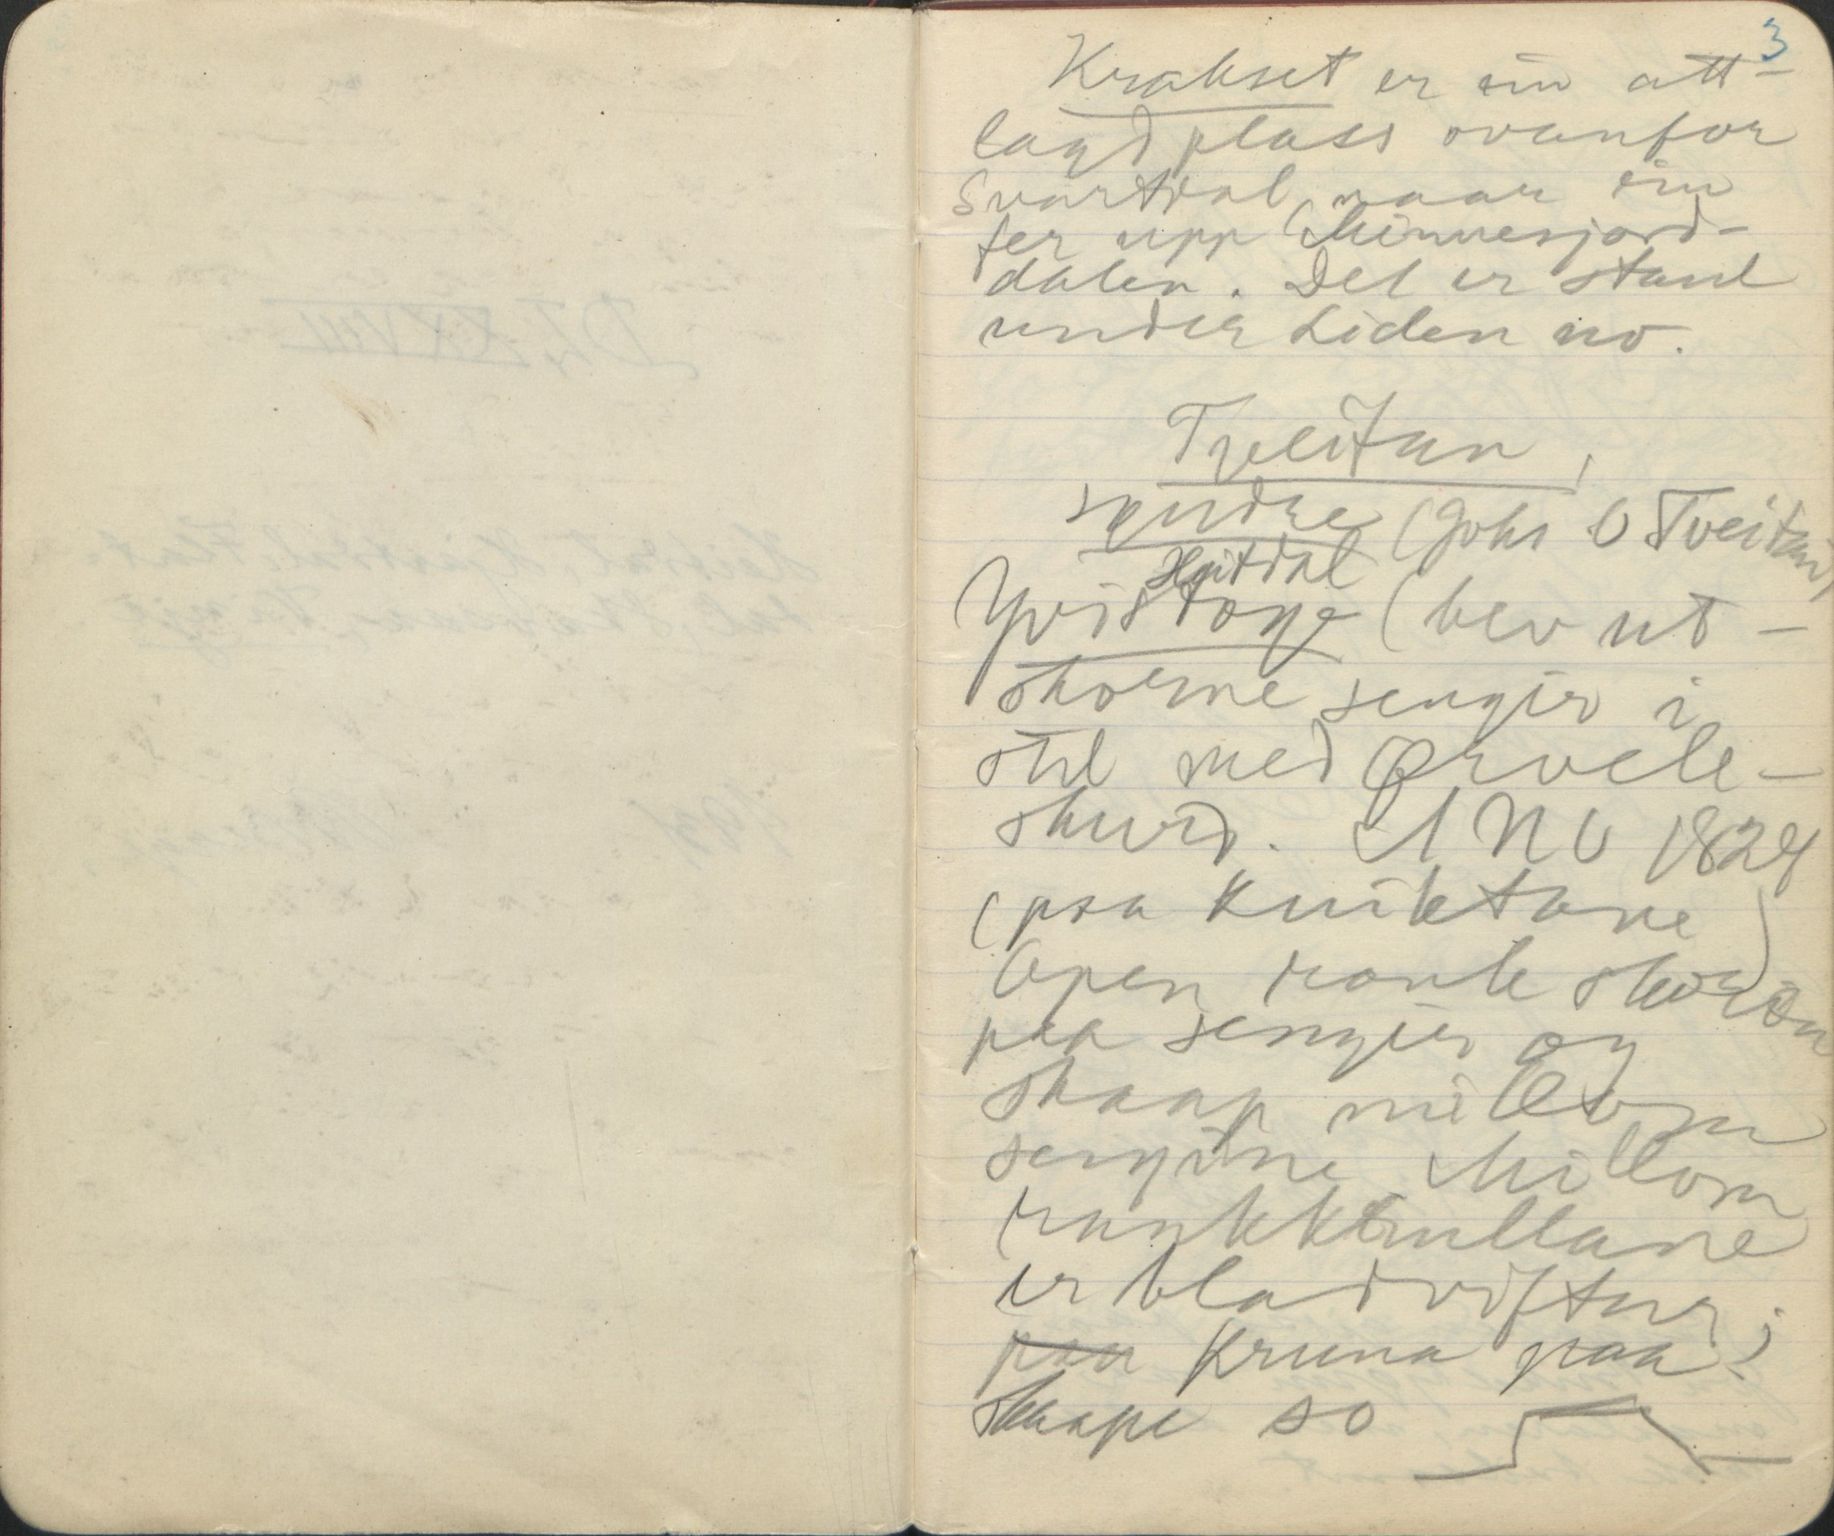 3
Krakset er ein att-
lagd plass ovanfor
Svartdal naar ein
fer upp Minnesjord-
dalen. Det er stavl
under Liden no.
Tveitan,
syndre (Johs O Tveitan)
Hjitdal
Yvistoge (hev ut-
skorne sengir i
stil med Ørvele-
skurd. ANO 1824
(paa kniktane)
Open rank skoren
paa sengir og
skaap millom
sengine Millom
rankkrullane
er bladviftur;
paa Kruna paa
skaape so